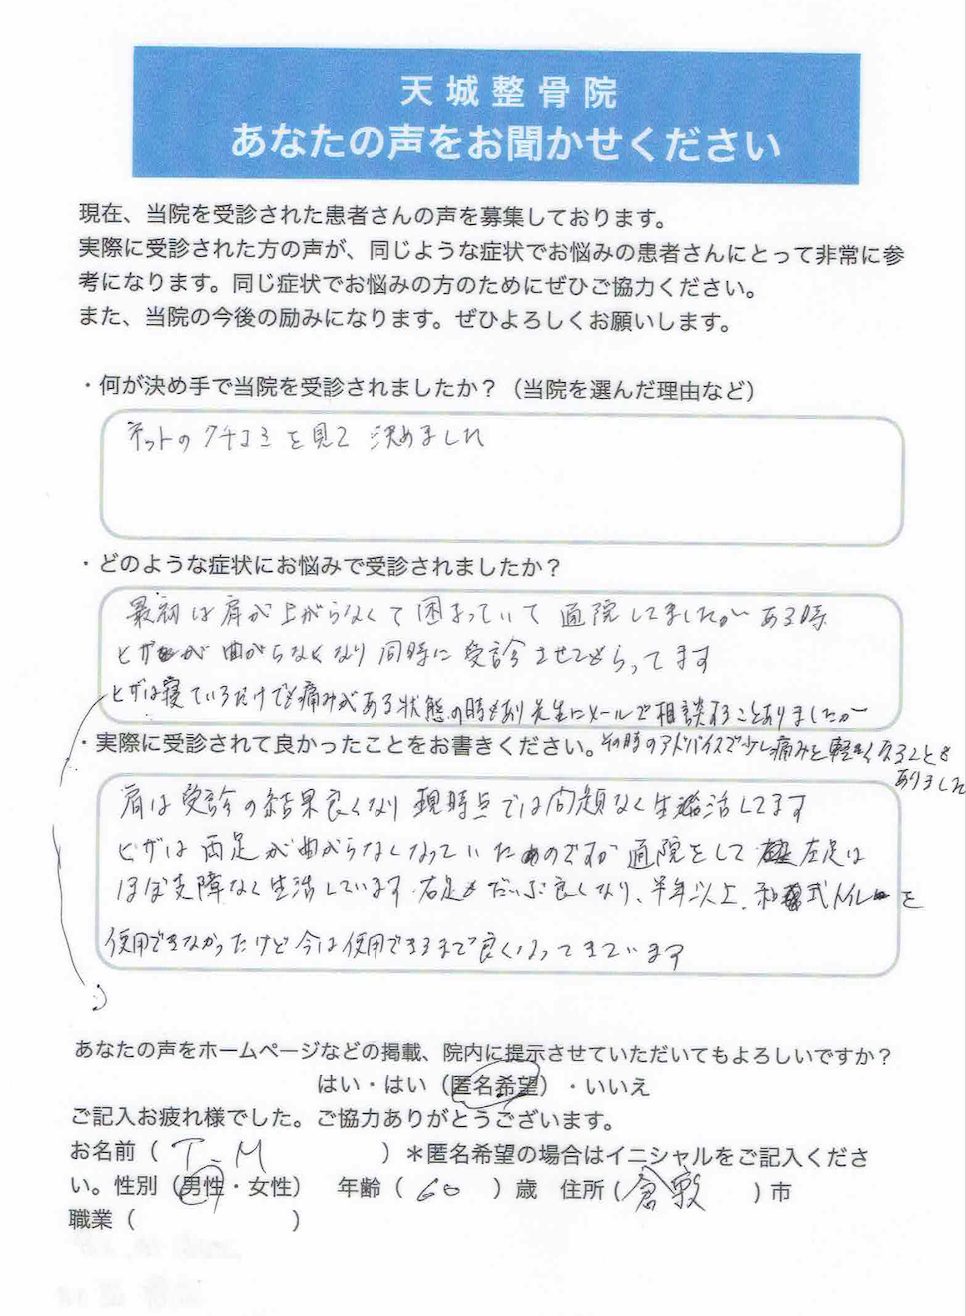 天城整骨院
あなたの声をお聞かせください
現在、当院を受診された患者さんの声を募集しております。
実際に受診された方の声が、同じような症状でお悩みの患者さんにとって非常に参
考になります。同じ症状でお悩みの方のためにぜひご協力ください。
また、当院の今後の励みになります。ぜひよろしくお願いします。
・何が決め手で当院を受診されましたか？（当院を選んだ理由など）
ネットのクチコミを見て 決めました
・どのような症状にお悩みで受診されましたか？
最初は肩が上がらなくて困っていて 通院してましたが ある時
ヒザが曲がらなくなり同時に受診させてもらってます
ヒザは寝ているだけでも痛みがある状態の時もあり先生にメールで相談することありましたが
・実際に受診されて良かったことをお書きください。その時のアドバイスで少し痛みを軽くなることも
ありました
肩は受診の結果良くなり 現時点では問題なく生活してます
ヒザは両足が曲がらなくなっていたのですが通院をして 左足は
ほぼ支障なく生活しています.右足もだいぶ良くなり、半年以上.和式トイレを
使用できなかったけど今は使用できるまで良くなってきています
あなたの声をホームページなどの掲載、院内に提示させていただいてもよろしいですか？
はい・はい（匿名希望）・いいえ
ご記入お疲れ様でした。ご協力ありがとうございます。
お名前（ T.M ）＊匿名希望の場合はイニシャルをご記入くださ
い。性別（男性・女性） 年齢（ 60 ）歳 住所（ 倉敷 ）市
職業（ ）